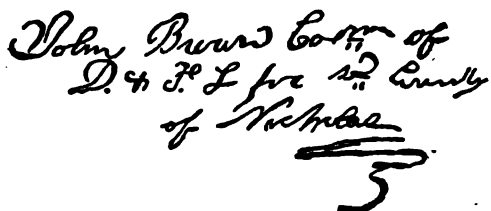 John Brown Com^n of
D. & F. L for s^d County
of Nicholas